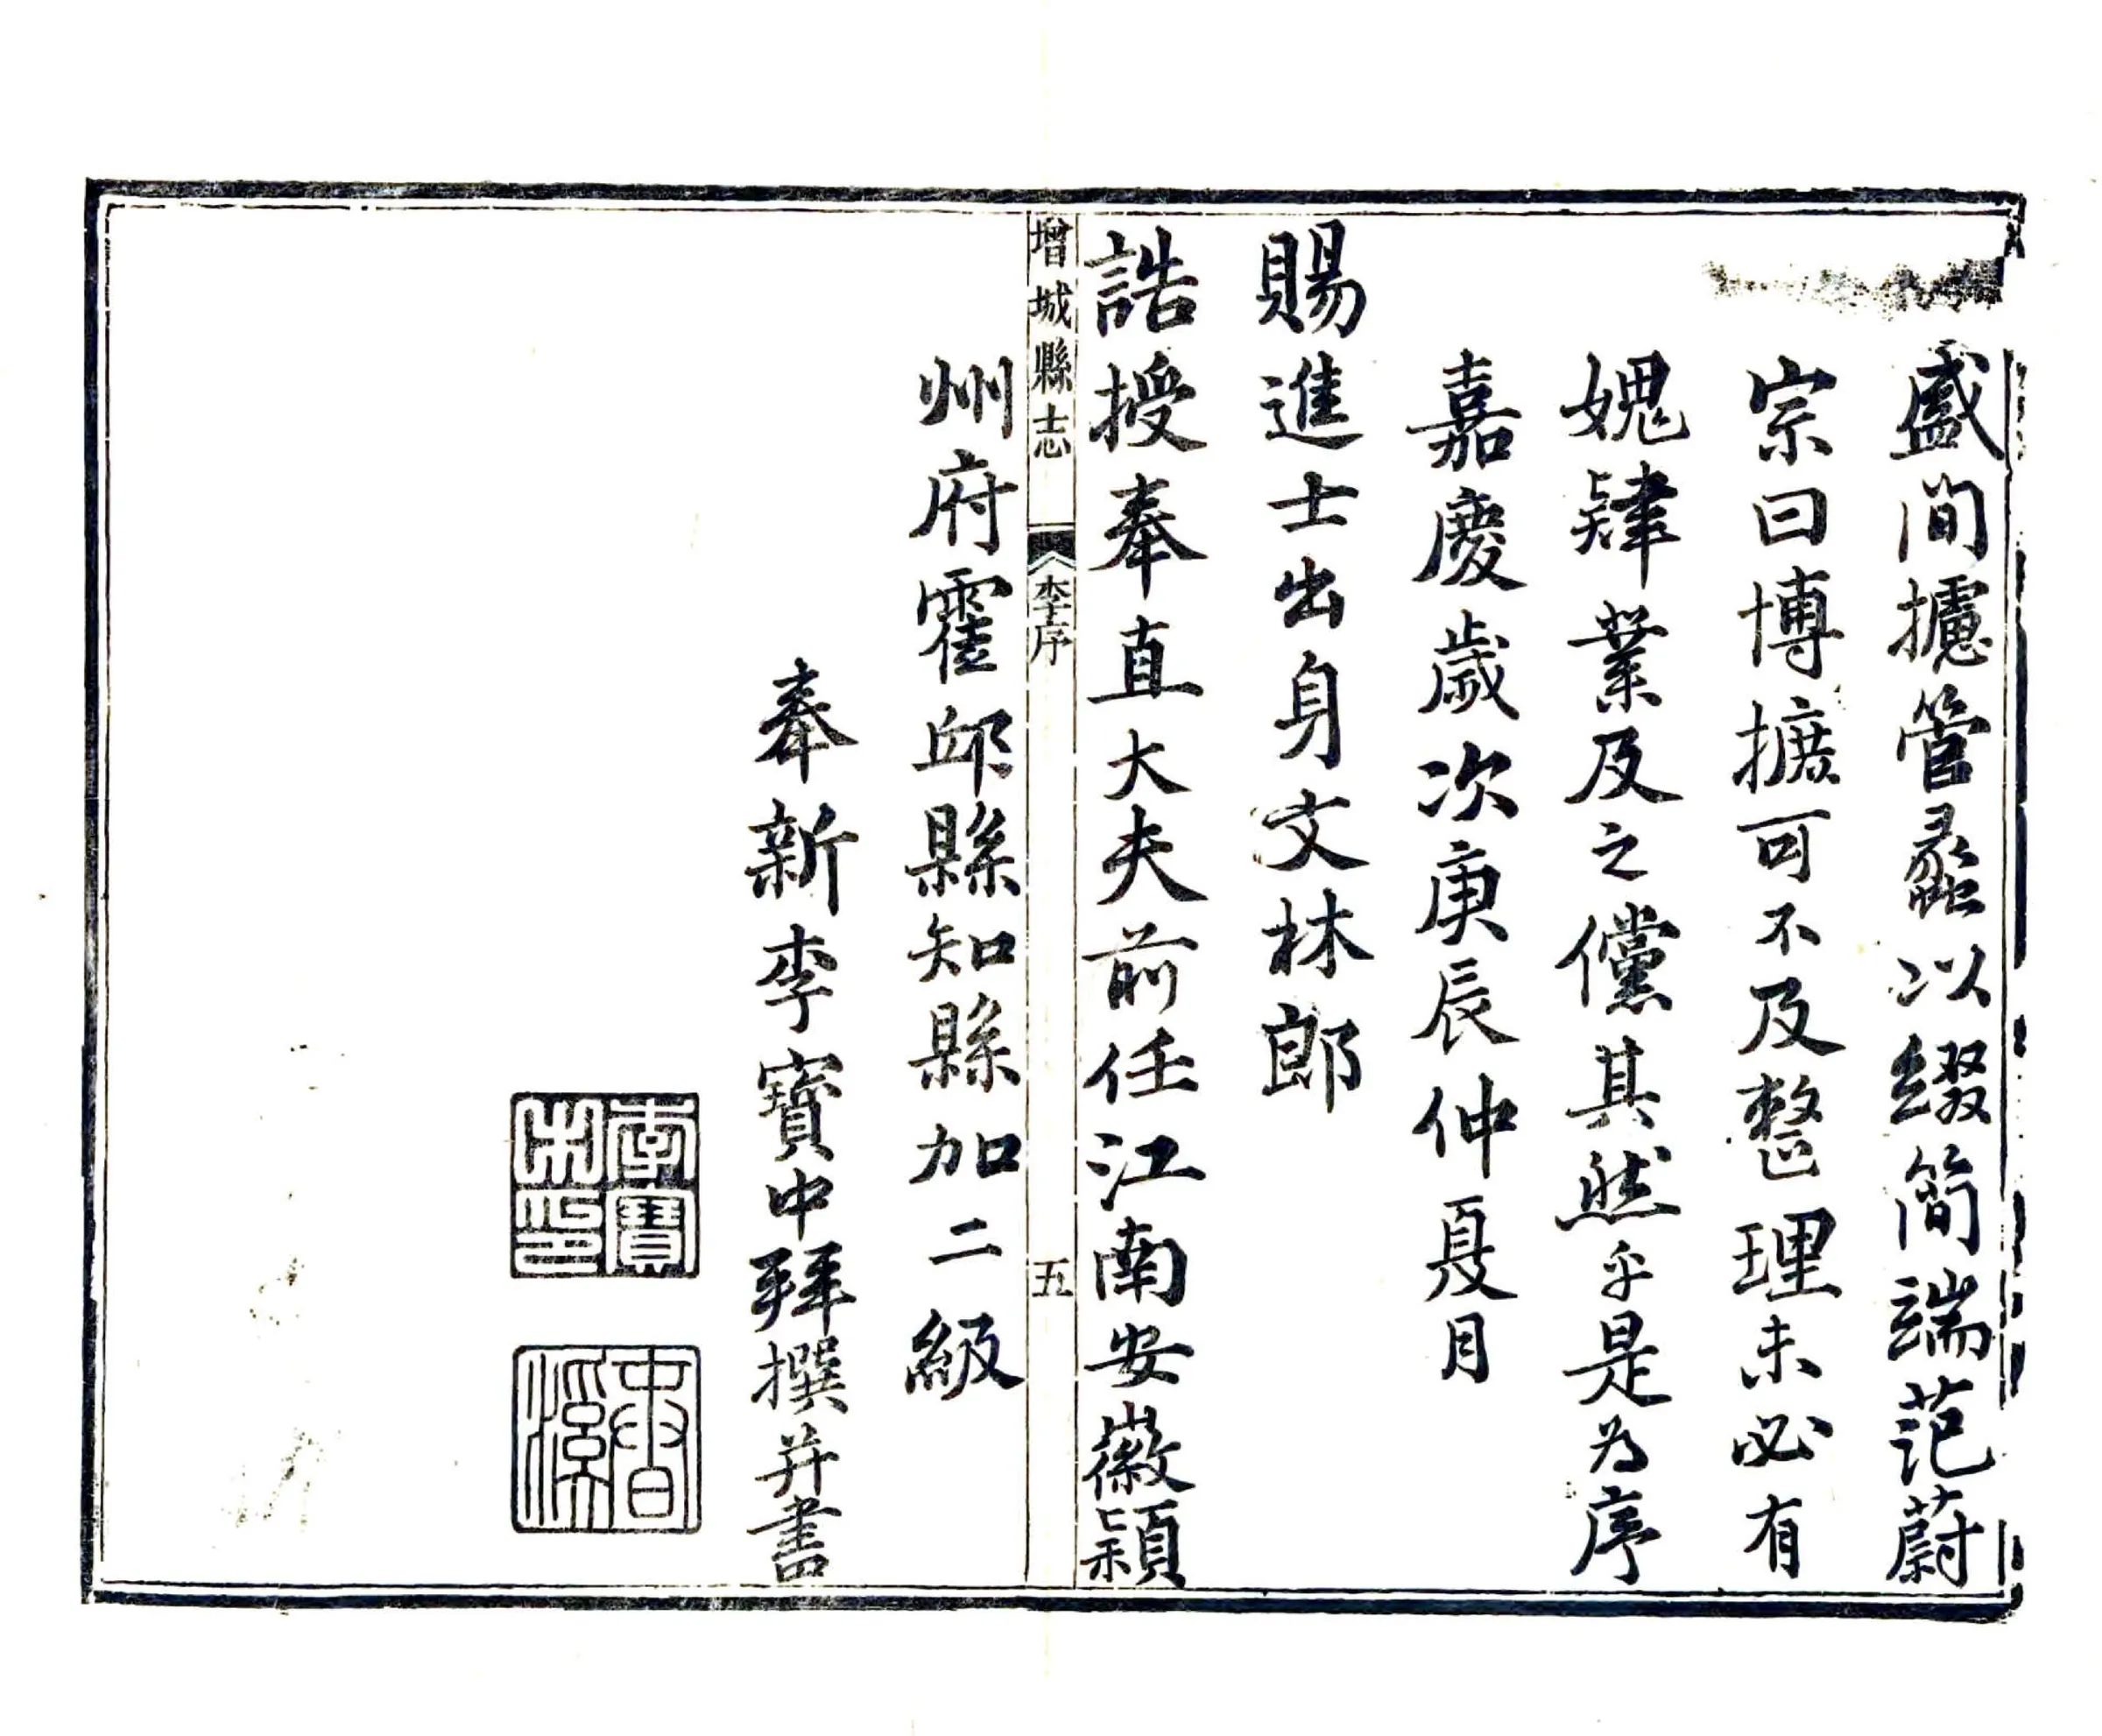 盛間攄管蠡以綴簡端范蔚
宗曰博摭可不及整理未必有
媿肄業及之儻其然乎是為序
嘉慶歲次庚辰仲夏月
賜進士出身文林郎
誥授奉直大夫前任江南安徽穎
增城縣志
李序
五
州府霍邱縣知縣加二級
奉新李寶中拜撰并書
李寶中印